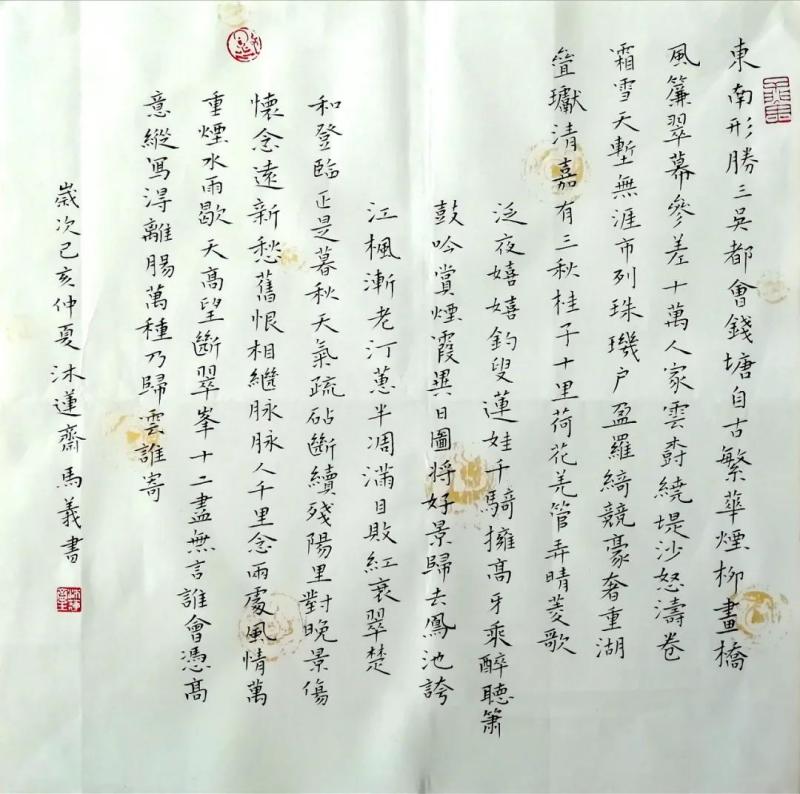 東南形勝三吳都會錢塘自古繁華煙柳畫橋
風簾翠幕參差十萬人家雲樹繞堤沙怒濤卷
霜雪天塹無涯市列珠璣户盈羅綺競豪奢重湖
疊巘清嘉有三秋桂子十里荷花羌管弄晴菱歌
泛夜嬉嬉釣叟蓮娃千騎擁高牙乘醉聽簫
鼓吟賞煙霞異日圖將好景歸去鳳池誇
江楓漸老汀蕙半凋滿目敗紅衰翠楚
和登臨正是暮秋天氣疏砧斷續殘陽里對晚景傷
懷念遠新愁舊恨相繼脉脉人千里念兩處風情萬
重煙水雨歇天高望斷翠峯十二盡無言誰會憑高
意縱寫得離腸萬種乃歸雲誰寄
歲次己亥仲夏沐蓮齋馬義書